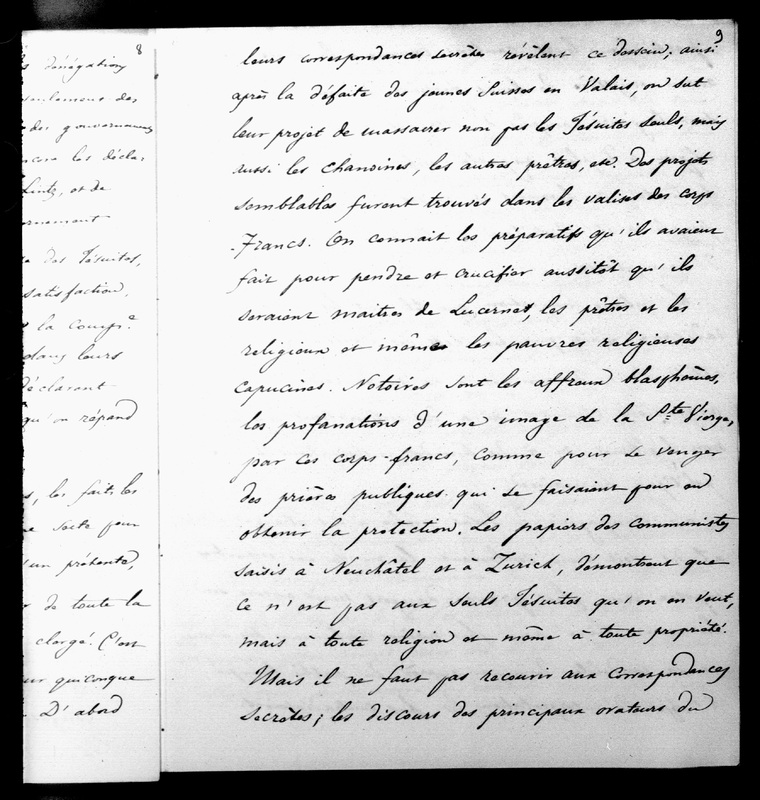 8
dénégations
seulement des
des gouvernements
encore les décla-
et de
des Jésuites,
satisfaction,
la Comp.e
dans leurs
déclarant
qu'on répand
les faits les
secte pour
un présente,
de toute la
clergé. C'est
quiconque
D'abord
9
leurs correspondances secrètes révèlent ce dessein; ainsi
après la défaite des jeunes Suisses en Valais, on sut
leur projet de massacrer non pas les Jésuites seuls, mais
aussi les chanoines, les autres prêtres, etc. Des projets
semblables furent trouvés dans les valises des corps
-Francs. On connait les préparatifs qu'ils avaient
fait pour pendre et crucifier aussitôt qu'ils
seraient maitres de Lucerne, les prêtres et les
religieux et même les pauvres religieuses
capucines. Notoires sont les affreux blasphêmes,
les profanations d'une image de la Ste Vierge,
par ces corps-francs, comme pour se venger
des prières publiques qui se faisaient pour en
obtenir la protection. Les papiers des communistes
saisis à Neuchâtel et à Zurich, démontrent que
ce n'est pas aux seuls Jésuites qu'on en veut,
mais à toute religion et même à toute propriété.
Mais il ne faut pas recourir aux correspondances
secrètes; les discours des principaux orateurs du